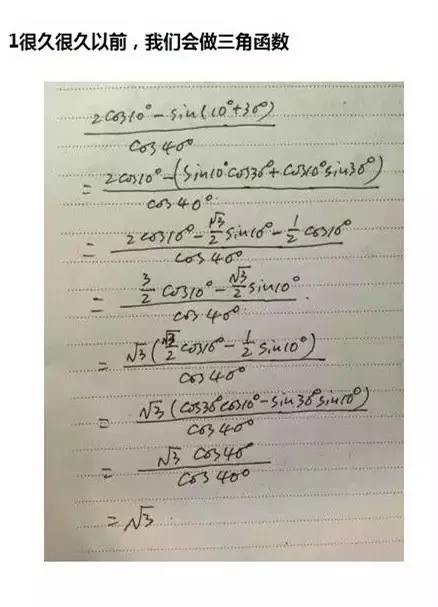 1很久很久以前，我们会做三角函数
2cos10° - sin(10°+30°)
cos40°
= 2cos10° - (sin10°cos30° + cos10°sin30°)
cos40°
= 2cos10° - √3/2 sin10° - 1/2 cos10°
cos40°
= 3/2 cos10° - √3/2 sin10°
cos40°
= √3(√3/2 cos10° - 1/2 sin10°)
cos40°
= √3(cos30°cos10° - sin30°sin10°)
cos40°
= √3 cos40°
cos40°
= √3